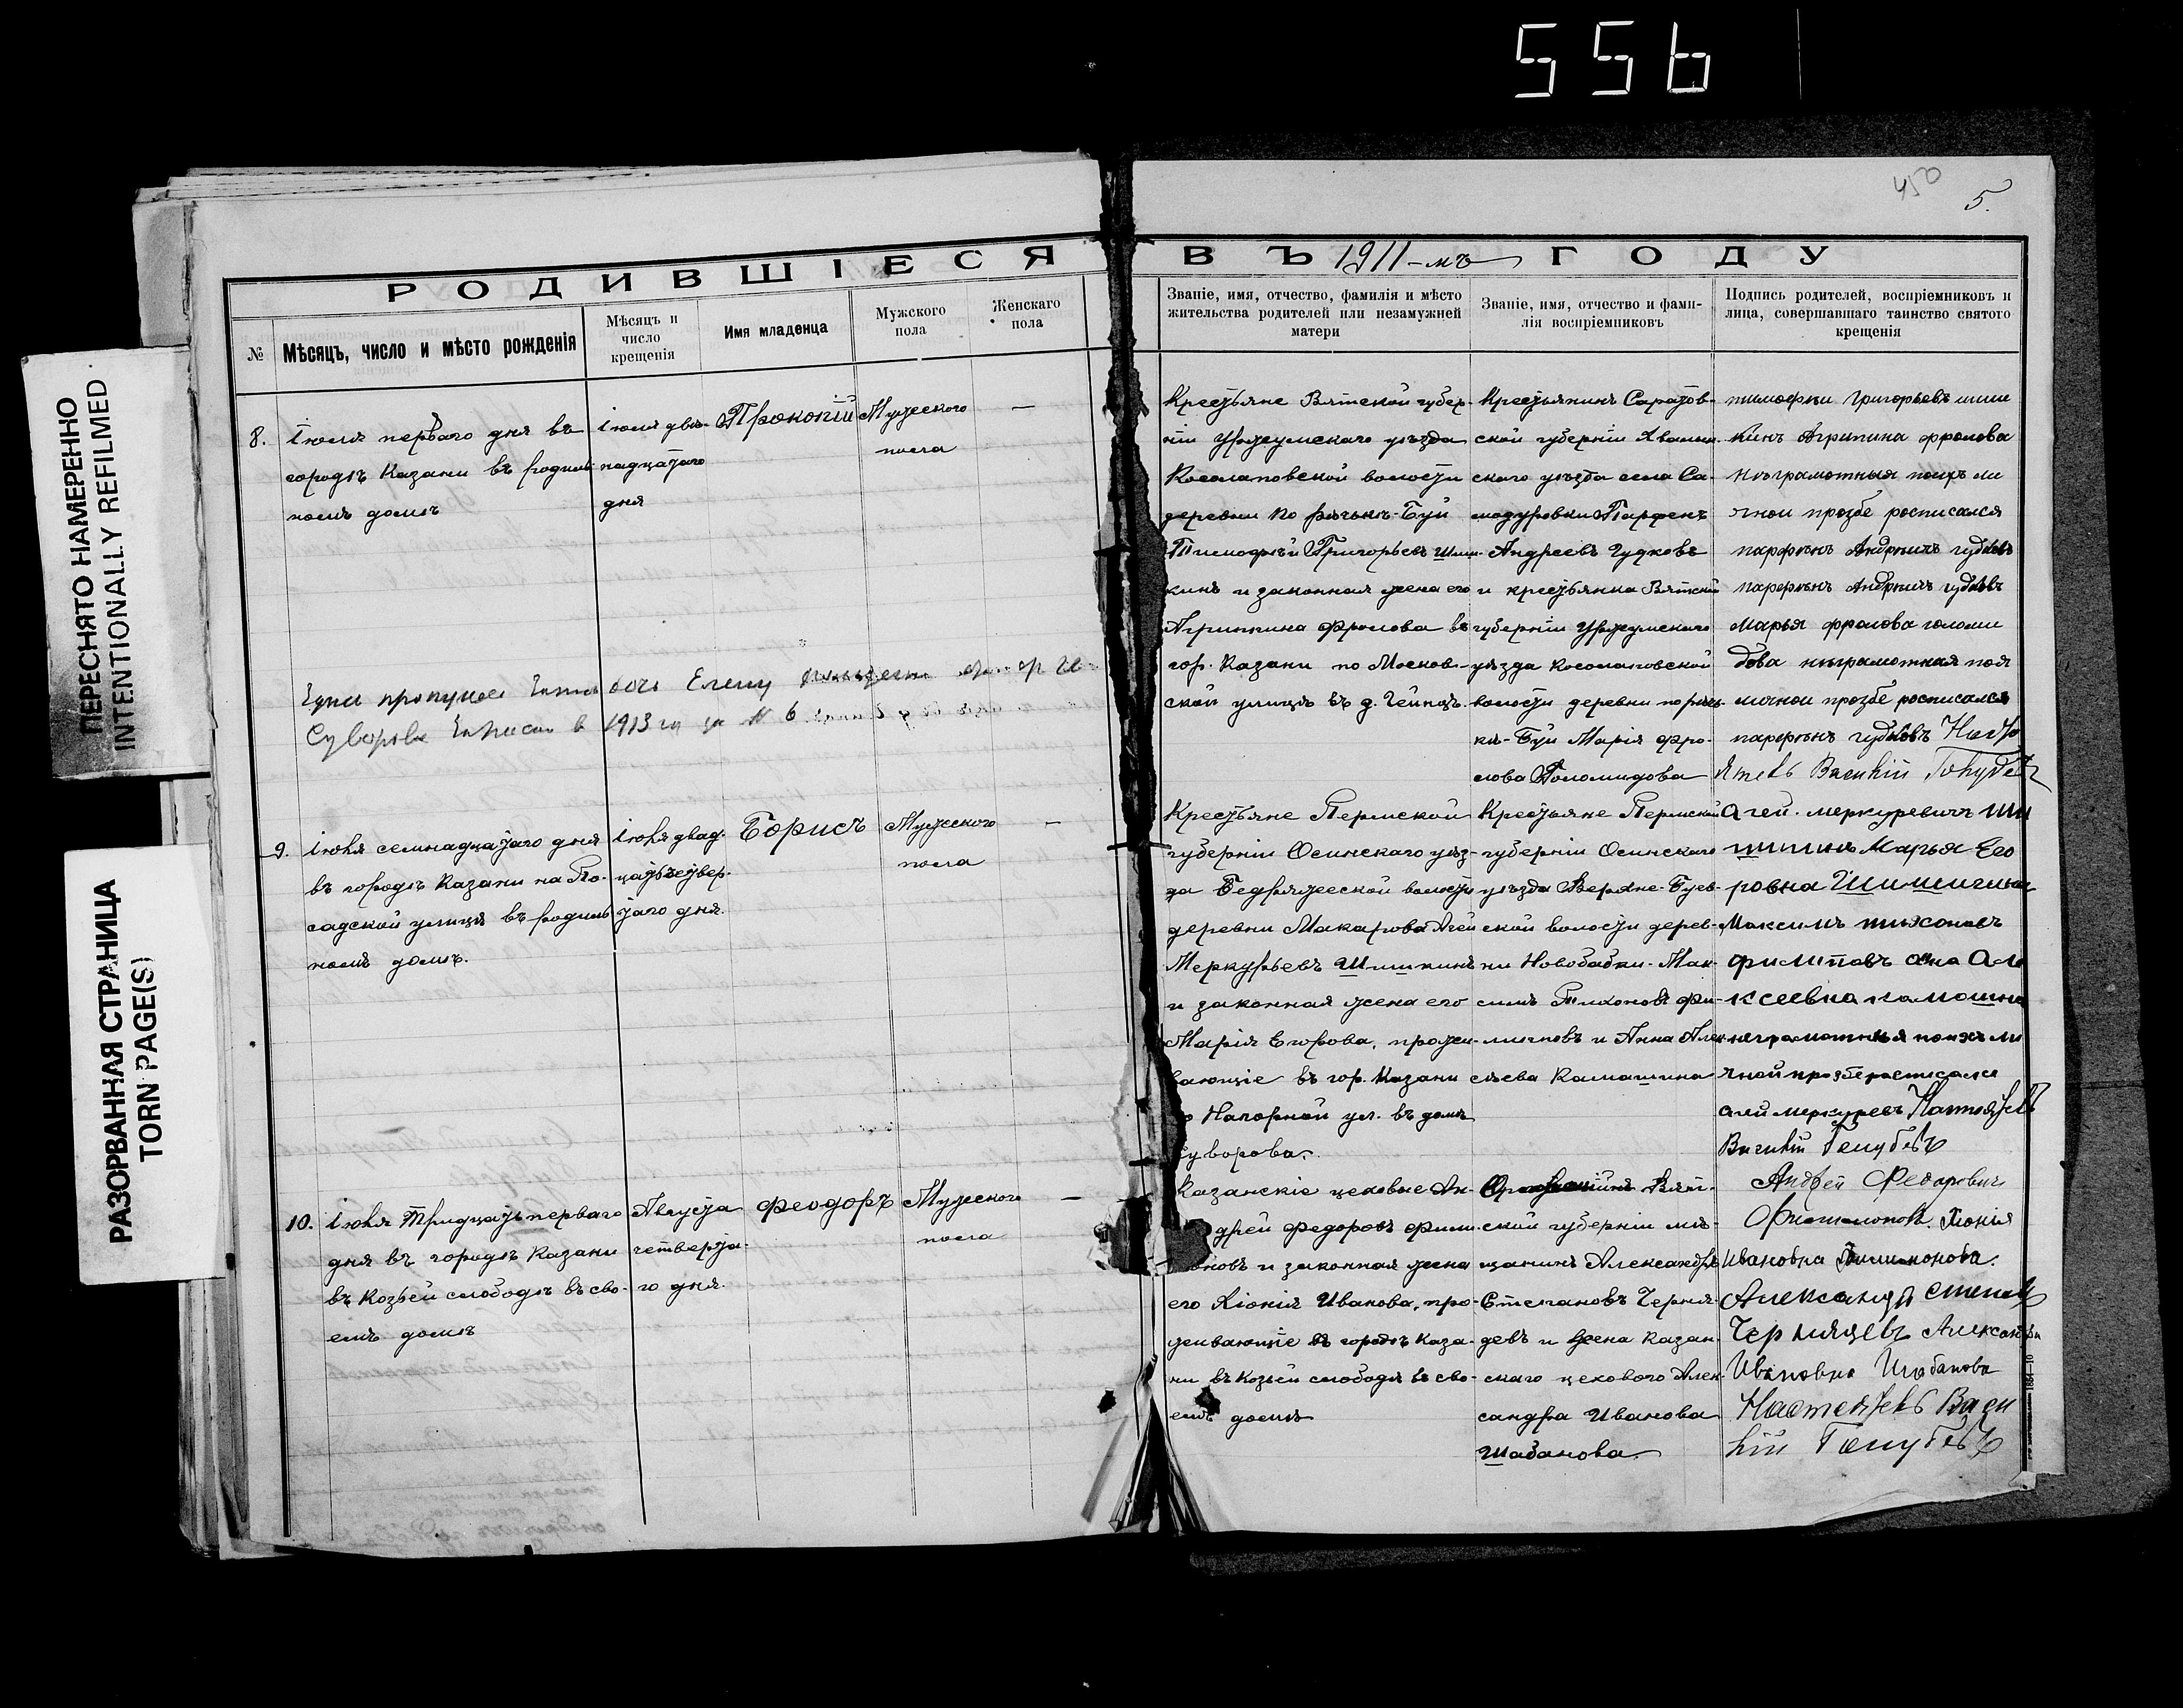 556
450
5.
ПЕРЕСНЯТО НАМЕРЕННО
INTENTIONALLY REFILMED
РАЗОРВАННАЯ СТРАНИЦА
TORN PAGE(S)
РОДИВШІЕСЯ ВЪ 1911-мъ ГОДУ
№
Мѣсяцъ, число и мѣсто рожденія
Мѣсяцъ и
число
крещенія
Имя младенца
Мужского
пола
Женскаго
пола
Званіе, имя, отчество, фамилія и мѣсто
жительства родителей или незамужней
матери
Званіе, имя, отчество и фами-
лія воспріемниковъ
Подпись родителей, воспріемниковъ и
лица, совершавшаго таинство святого
крещенія
8.
Іюля перваго дня въ
городѣ Казани въ родиль
номъ домѣ
Іюля две-
надцатаго
дня
Прокопій
Мужеского
пола
—
Крестьяне Вятской губер-
ніи Уржумскаго уѣзда
Косолаповской волости
деревни по рѣчкѣ-Буй
Тимофей Григорьевъ Шиш-
кинъ и законная жена его
Агрипина Фролова въ
гор. Казани по Москов-
ской улицѣ въ д.
Крестьянинъ Саратов-
ской губерніи Хвалын-
скаго уѣзда села Са-
модуровки Парфенъ
Андреевъ Гудковъ
и крестьянка Вятской
губерніи Уржумскаго
уѣзда Косолаповской
волости деревни по рѣч-
кѣ-Буй Марія Фро-
лова Голомидова
тимофеи григорьевъ шиш
кинъ Агрипина фролова
неграмотныя поихъ ли
чнои прозбе росписался
парфѣнъ гудковъ
парфенъ гудковъ
марья фролова голоми
дова неграмотная поя
личнои прозбе росписался
парфенъ гудковъ Насто
ятель Василій Голубевъ
Суворова в 1913 г. за № 6
9.
Іюля семнадцатаго дня
въ городѣ Казани на По-
садской улицѣ въ родиль
номъ домѣ.
Іюля двад-
цать четвер-
таго дня.
Борисъ
Мужеского
пола
—
Крестьяне Пермской
губерніи Осинскаго уѣз-
да Бедряжской волости
деревни Макарова Агей
Меркурьевъ Шишкинъ
и законная жена его
Марія Егорова, прожи-
вающіе въ гор. Казани
по Напорной ул. въ домѣ
Суворова.
Крестьяне Пермской
губерніи Осинскаго
уѣзда Верхне-Буев-
ской волости дерев-
ни Новобабки. Мак-
симъ Тихоновъ Фи-
липповъ и Анна Алек-
сѣева Камашина
Агей меркуревичъ Ши
шкинъ Марья Его
ровна Шишкина
Максимъ тихоновъ
филиповъ анна Але
ксеевна камашина
неграмотныя поихъ ли
чной прозбе
агей меркуревъ Настоятель
Василій Голубевъ
10.
Іюля Тридцать перваго
дня въ городѣ Казани
въ Козьей слободѣ въ сво-
емъ домѣ
Августа
четверта-
го дня.
Феодоръ
Мужеского
пола
—
Казанскіе цеховые Ан-
дрей Федоровъ Фили-
моновъ и законная жена
его Хіонія Иванова, про-
живающіе въ городѣ Каза-
ни въ Козьей слободѣ въ сво-
емъ домѣ
Вят-
ской губерніи мѣ-
щанинъ Александръ
Степановъ Черня-
девъ и жена казан-
скаго цехового Алек-
сандра Иванова
Шабанова.
Андрей Федоровичъ
Филимоновъ. Хіонія
Ивановна Филимонова.
Александръ
Александра
Ивановна Шабанова
Настоятель Васи
лій Голубевъ